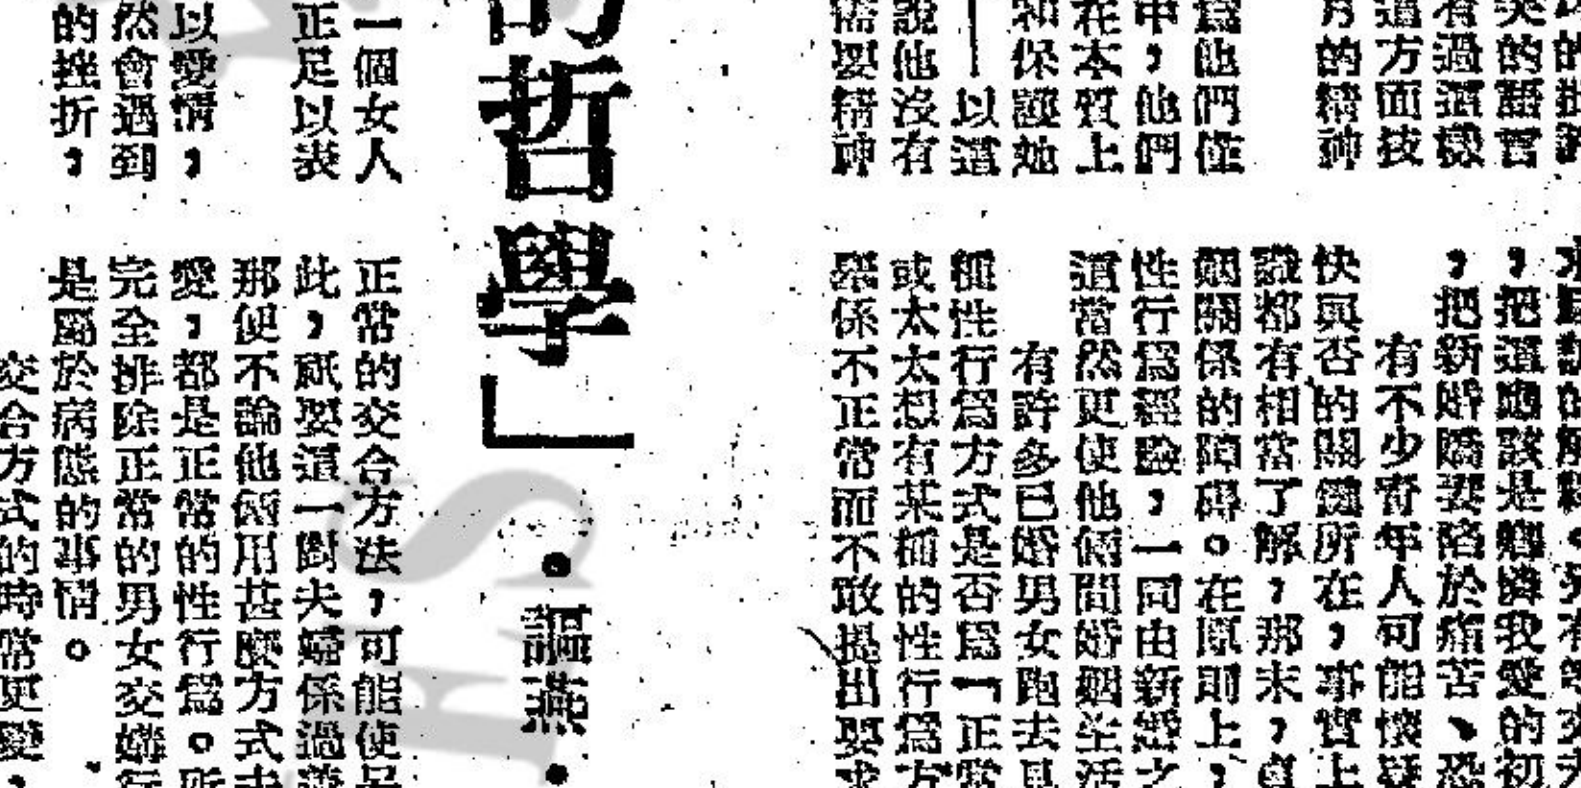 美的語言
有過這樣
這方面技
月的精神
爲他們僅
中，他們
在本質上
和保護她
—以這
說他沒有
需要精神
，把這應該是憐我愛的初
，把新婚嬌妻陷於痛苦、恐
有不少青年人可能懷疑
快與否的關鍵所在，事實上
識都有相當了解，那末，貞
姻關係的障碍。在原則上，
性行爲經驗，一同由新婚之
這當然更使他倆間婚姻生活
有許多已婚男女跑去見
種性行爲方式是否爲「正常
或太太想有某種的性行爲方
係不正常而不敢提出要求
的哲學」
•謳燕•
一個女人
正足以表
以愛情，
然會遇到
的挫折，
正常的交合方法，可能使
此，祇要這一對夫婦係過着
那便不論他倆用甚麼方式去
愛，都是正常的性行爲。所
完全排除正常的男女交媾行
是屬於病態的事情。
交合方式的時常更變，